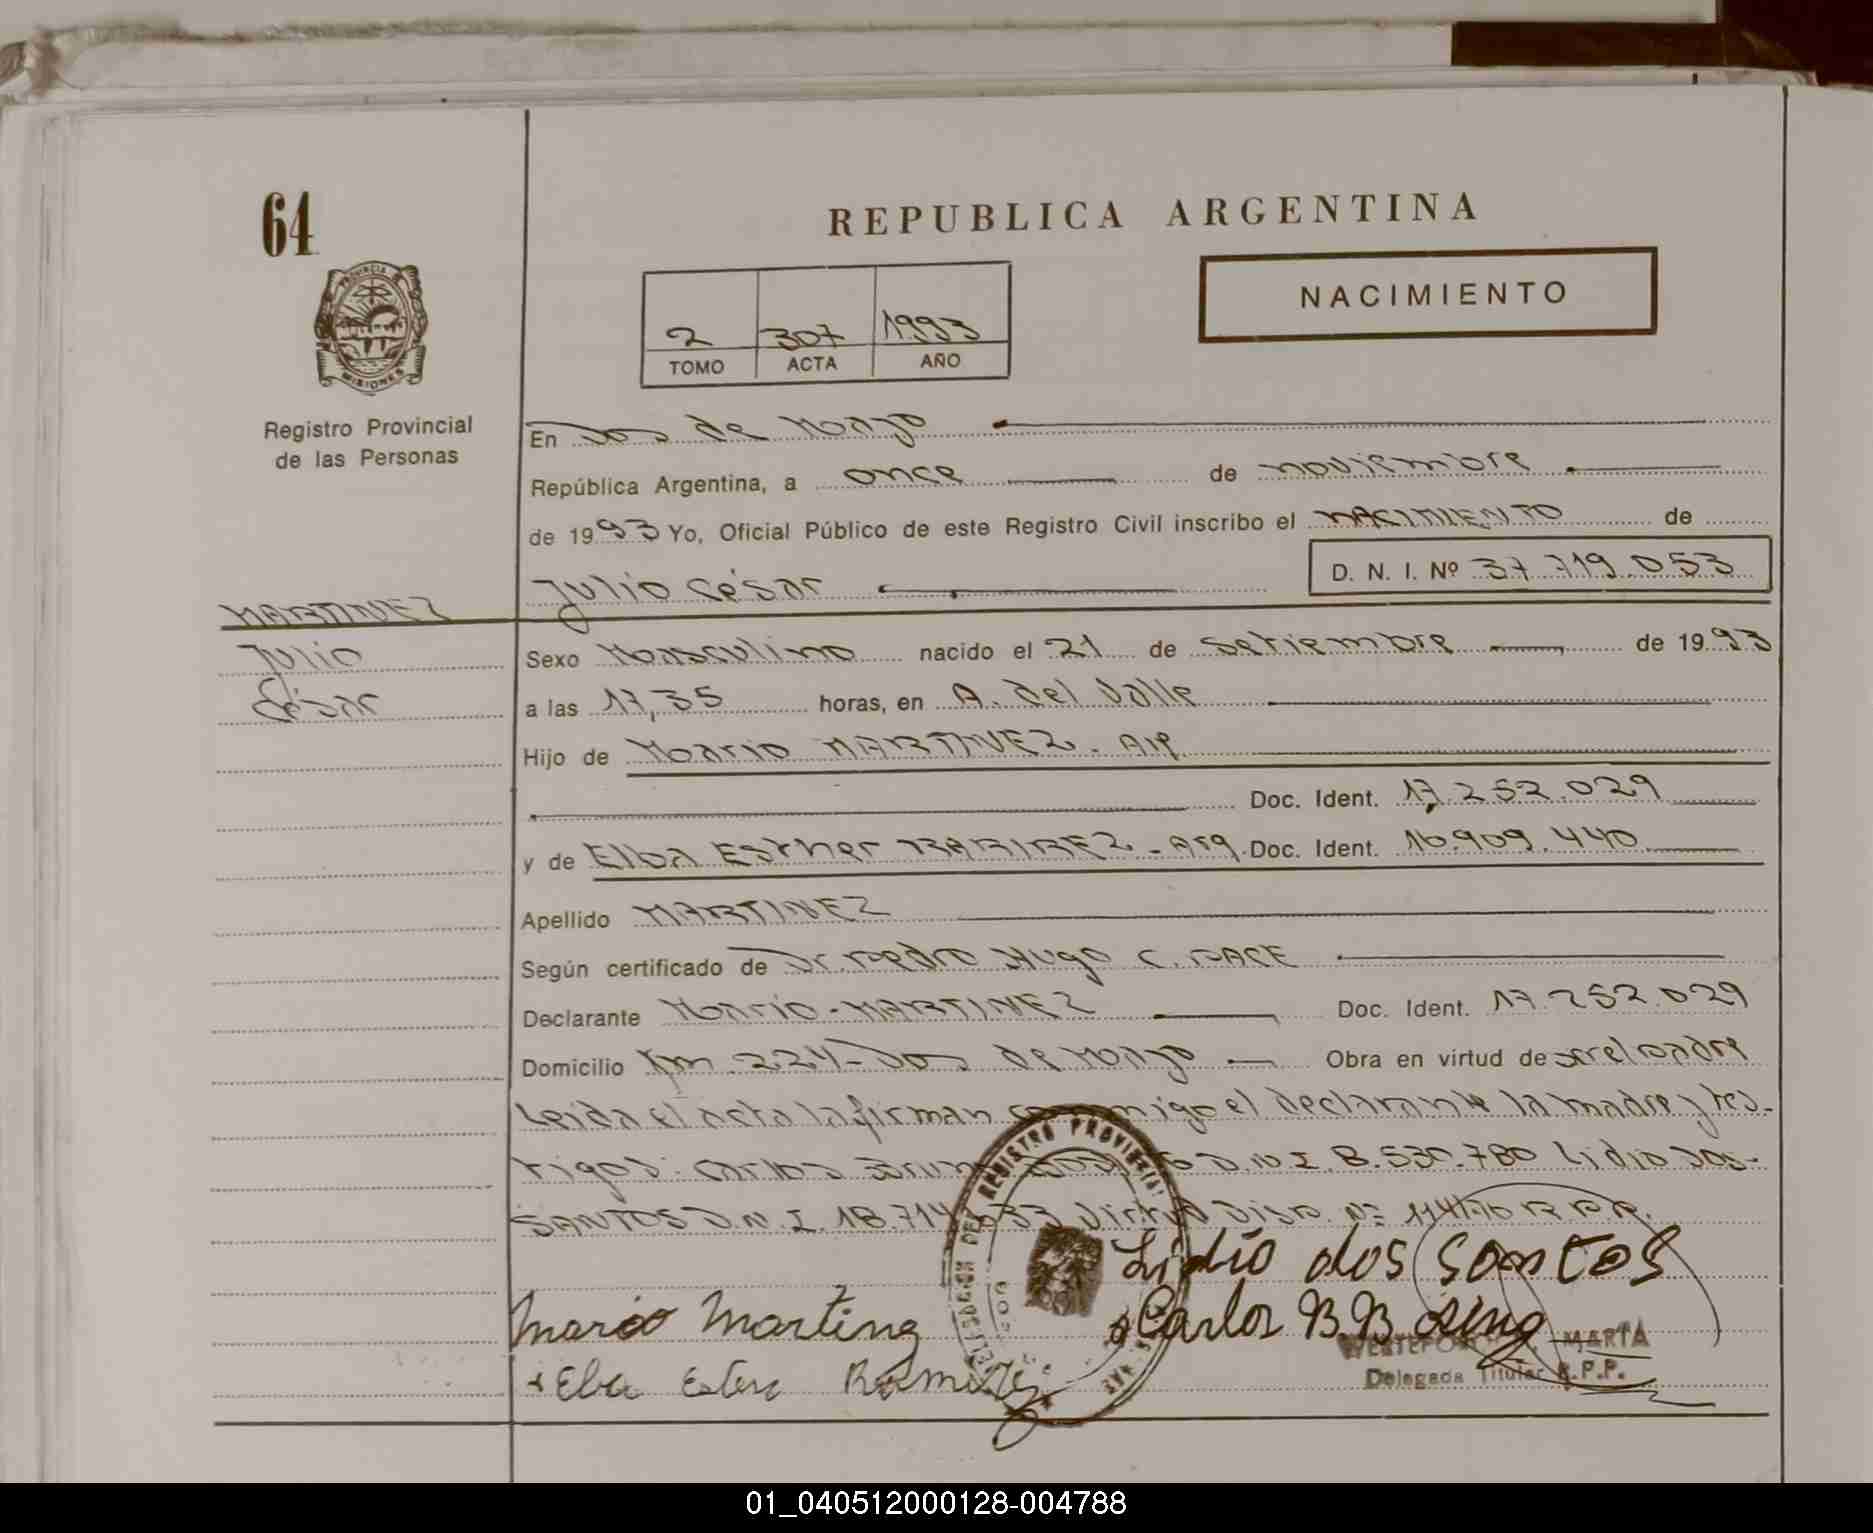 64
REPUBLICA ARGENTINA
NACIMIENTO
2 307 1993
TOMO ACTA AÑO
PROVINCIA DE
MISIONES
Registro Provincial
de las Personas
En Dos de Mayo
República Argentina, a once de noviembre
de 1993 Yo, Oficial Público de este Registro Civil inscribo el NACIMIENTO de
Julio César D. N. I. Nº 37.719.053
MARTINEZ
Julio
César
Sexo Masculino nacido el 21 de Setiembre de 1993
a las 17,35 horas, en A. del Valle
Hijo de Mario MARTINEZ. Arg
Doc. Ident. 17.252.029
y de Elba Esther RAMIREZ - Arg. Doc. Ident. 16.909.440
Apellido MARTINEZ
Según certificado de Dr. Pedro Hugo C. PACE
Declarante Mario - MARTINEZ Doc. Ident. 17.252.029
Domicilio Km. 224 - Dos de Mayo Obra en virtud de ser el padre
Leída el acta la firman conmigo el declarante la madre y tes-
tigos: Carlos D.N.I. 8.530.780 Lidio DOS-
SANTOS D.N.I. 18.714.033 Disp. Nº 114/70 R.P.P.
DELEGACION DEL REGISTRO PROVINCIAL
Lidio dos Santos
Mario Martinez Carlos B B
MARTA
Delegada Titular R.P.P.
Elba Ester Ramirez
01_040512000128-004788